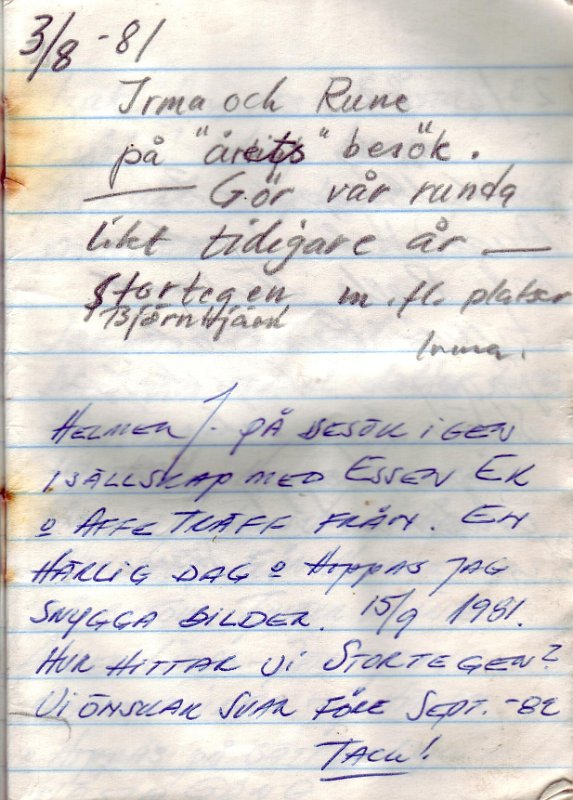 3/8 -81
Irma och Rune
på "årets" besök.
— Gör vår runda
likt tidigare år —
Stortegen m.fl. platser
Björntjärn
Irma.
HELMER J. PÅ BESÖK IGEN
I SÄLLSKAP MED ESSEN EK
o AFFE TRÄFF FRÅN. EN
HÄRLIG DAG o HOPPAS JAG
SNYGGA BILDER. 15/9 1981.
HUR HITTAR VI STORTEGEN?
VI ÖNSKAR SVAR FÖRE SEPT. -82
TACK!